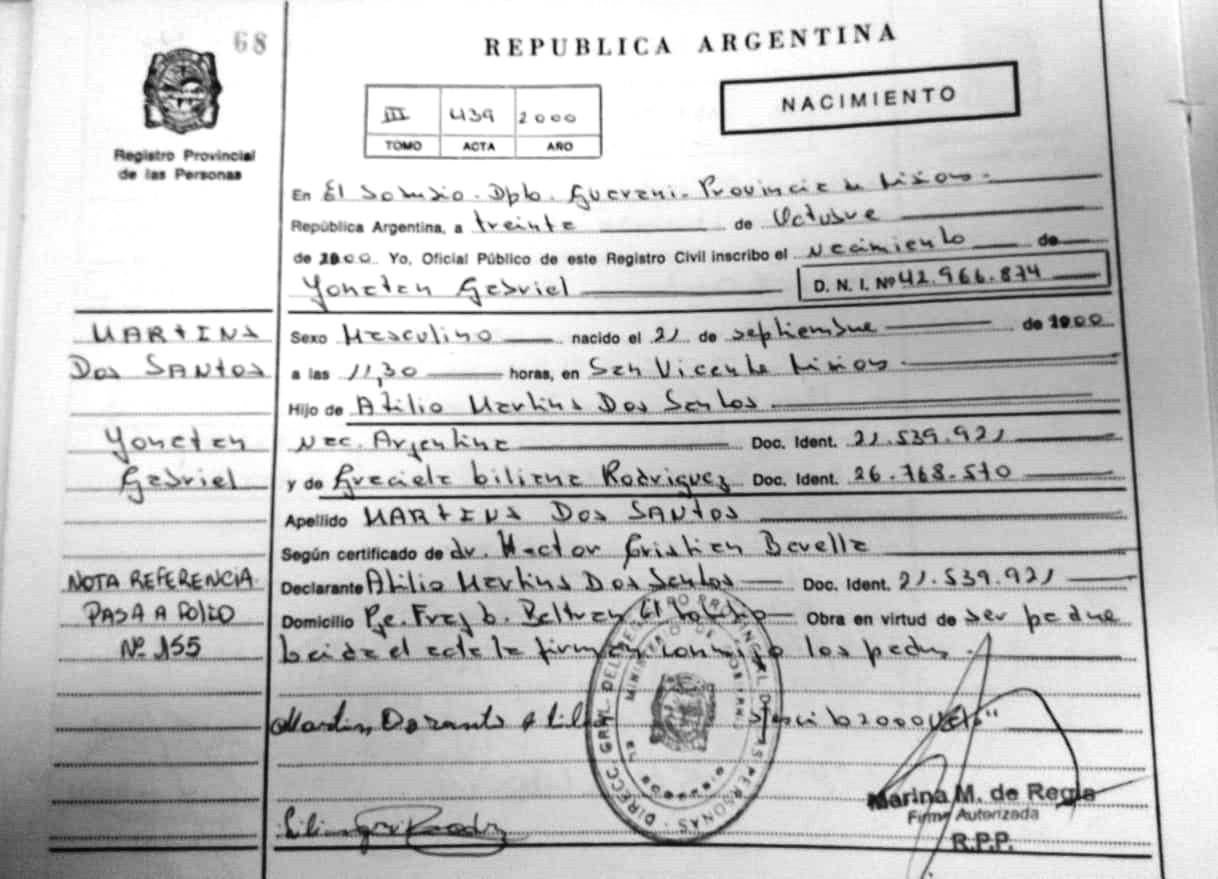 68
REPUBLICA ARGENTINA
NACIMIENTO
III 439 2000
TOMO ACTA AÑO
Registro Provincial
de las Personas
En El Soberbio. Dpto. Guarani. Provincia de Misiones.
República Argentina, a treinta de Octubre
de 2000 Yo, Oficial Público de este Registro Civil inscribo el nacimiento de
Yonatan Gabriel D. N. I. Nº 42.966.874
Sexo Masculino nacido el 21 de septiembre de 2000
a las 11,30 horas, en San Vicente Misiones
Hijo de Atilio Martins Dos Santos
Nac. Argentina Doc. Ident. 21.539.921
y de Graciela biliana Rodriguez Doc. Ident. 26.768.570
Apellido MARTINS DOS SANTOS
Según certificado de dr. Hector Cristian Bavella
Declarante Atilio Martins Dos Santos Doc. Ident. 21.539.921
Domicilio Pje. Fray b. Beltran El Soberbio Obra en virtud de ser padre
Leida el acta la firman conmigo los padres.
MARTINS
DOS SANTOS
Yonatan
Gabriel
NOTA REFERENCIA
PASA A FOLIO
Nº 155
DIRECC. GRAL. DEL REGISTRO PROVINCIAL DE LAS PERSONAS
MINISTERIO DE GOBIERNO
EL SOBERBIO
Marina M. de Regla
Firma Autorizada
R.P.P.